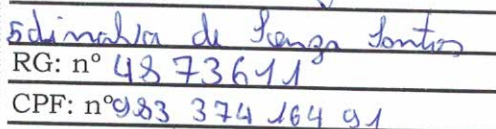 Edinalva de Souza Santos
RG: nº 48 73611
CPF: nº 983 374 164 91